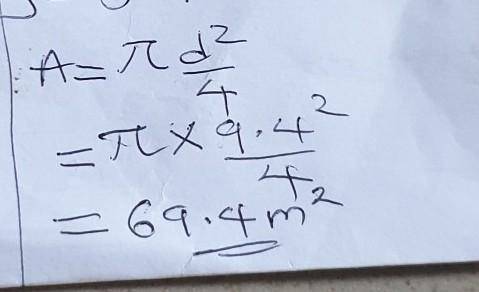 A = π d²/4
= π × 9.4²/4
= 69.4 m²